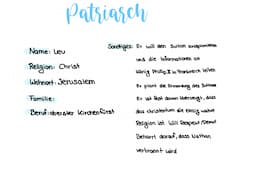 Patriarch
Name: Leu
Religion: Christ
Wohnort: Jerusalem
Familie:
Beruf: oberster Kirchenfürst
Sonstiges: Er will den Sultan ausspionieren
und die Informationen an
König Philip II in Frankreich leiten
Er plant die Ermordung des Sultans
Er ist fest davon überzeugt, dass
das Christentum die einzig wahre
Religion ist. Will Respekt/Demut
Beharrt darauf, dass Nathan
verbrannt wird